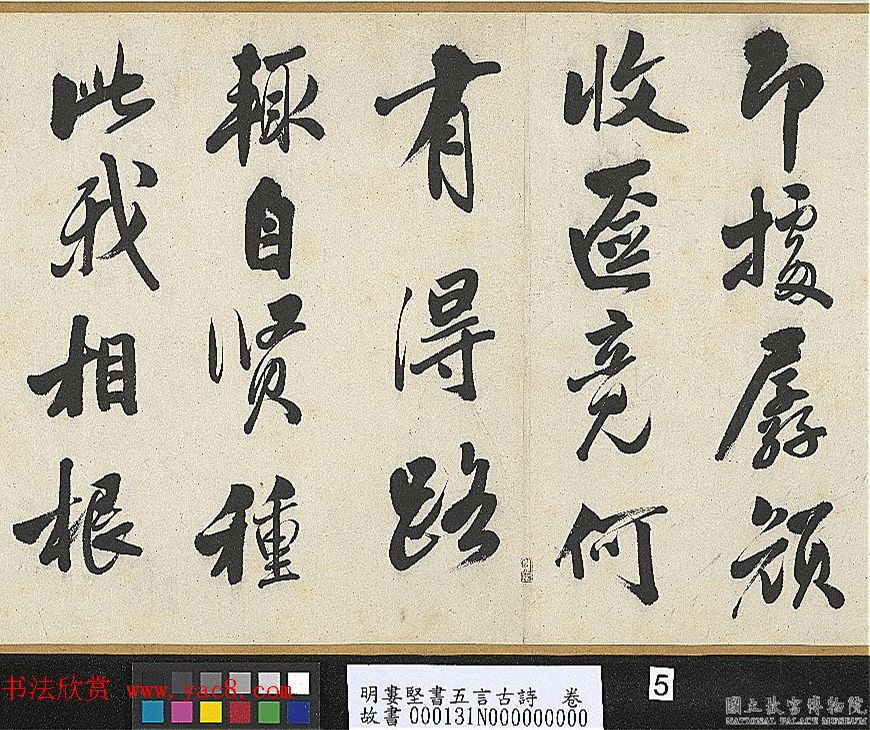 據孱顔
收竟何
有得路
輒自賢種
此我相根
书法欣赏 www.yac8.com
明婁堅書五言古詩 卷
故書 000131N000000000
5
國立故宮博物院
NATIONAL PALACE MUSEUM